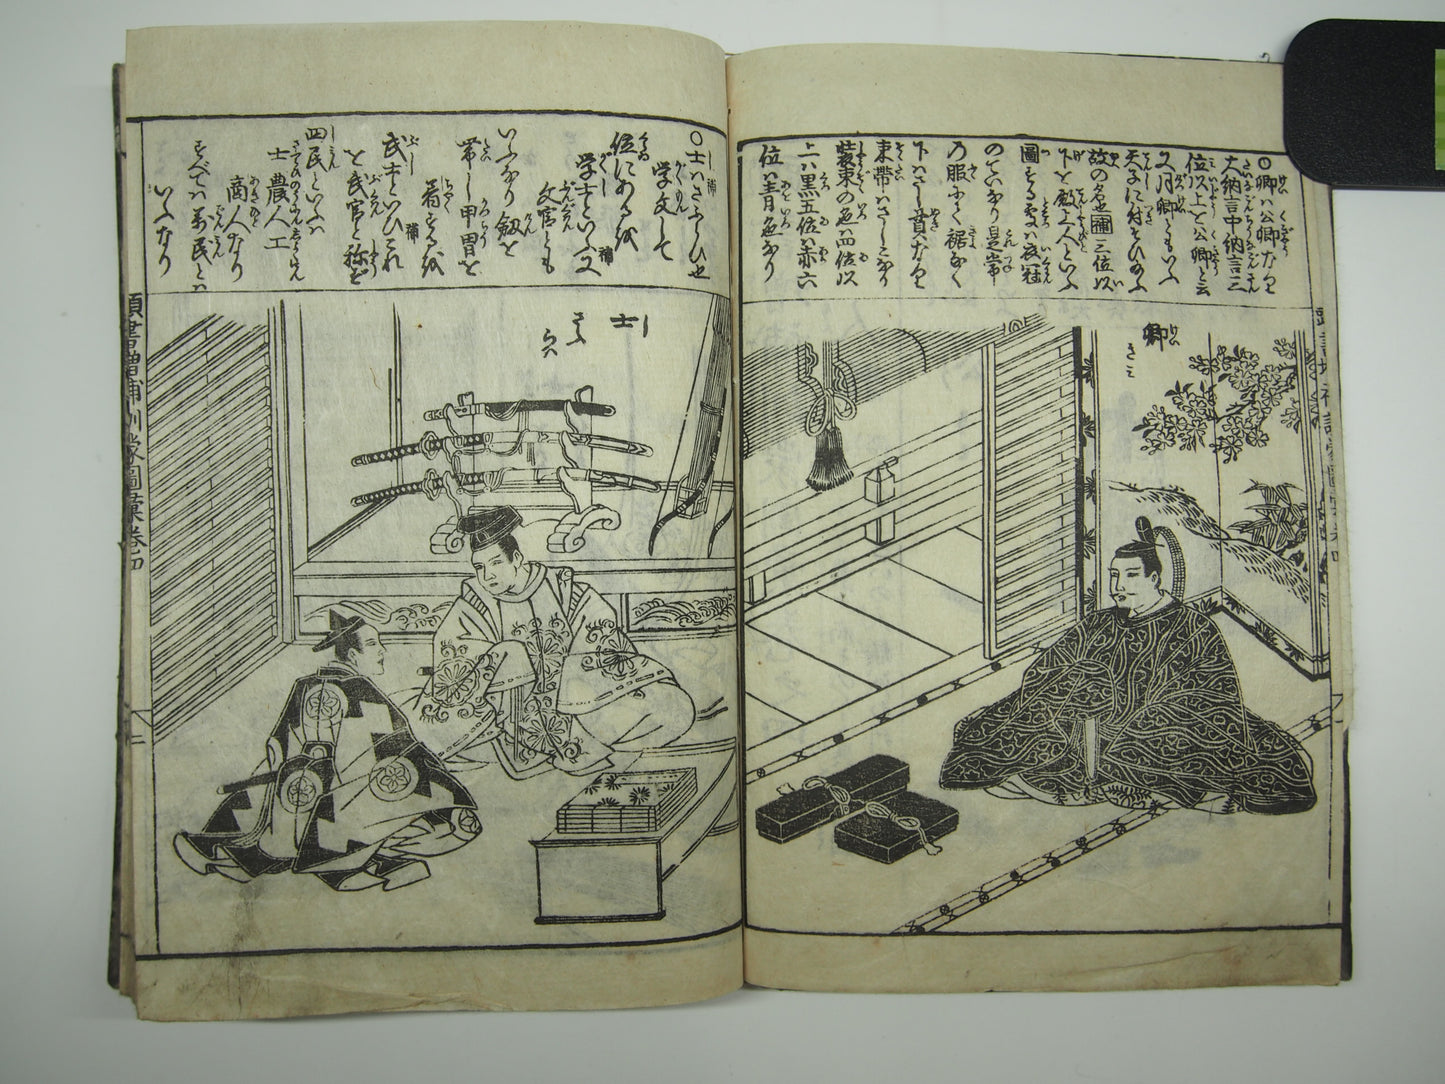 ○卿ハ公卿なり
大納言中納言三
位以上を公卿と云
又月卿ともいふ
天子に付そひ給ふ
故の名也補三位以
下を殿上人といふ
圖する処ハ衣冠
のていなり是常
乃服にて裾なく
下はさし貫なり
束帯ハ
装束の色ハ四位以
上ハ黒五位ハ赤六
位ハ青色なり
卿
けい
きみ
○士ハさふらひ也
学文して
位にあるを
学士といふ又
文官とも
いふなり釼を
帯し甲冑を
着するを
武士といひこれ
を武官と称ず
四民といふハ
士農人工
商人なり
すべてハ万民と
いふなり
士
し
さふらひ
頭書增補訓蒙圖彙巻四